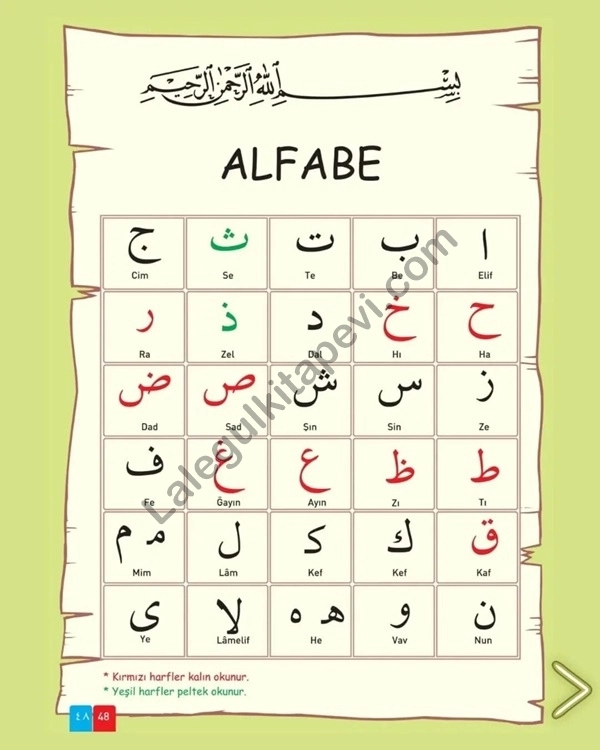 بِسْمِ اللهِ الرَّحْمٰنِ الرَّحِيمِ
ALFABE
ا ب ت ث ج
Elif Be Te Se Cim
ح خ د ذ ر
Ha Hı Dal Zel Ra
ز س ش ص ض
Ze Sin Şın Sad Dad
ط ظ ع غ ف
Tı Zı Ayın Ğayın Fe
ق ك ک ل مـ م
Kaf Kef Kef Lâm Mim
ن و هـ ه لا ى
Nun Vav He Lâmelif Ye
* Kırmızı harfler kalın okunur.
* Yeşil harfler peltek okunur.
٤٨ 48
Lalegulkitapevi.com